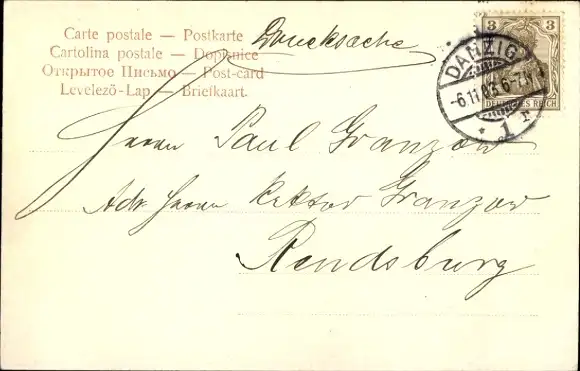 Carte postale — Postkarte
Cartolina postale — Dopisnice
Открытое Письмо — Post-card
Levelező-Lap — Briefkaart.
Drucksache
3 3
DEUTSCHES REICH
DANZIG
-6.11.03.6-7.N
* 1 r
Herrn Paul Granzow
Adr. Herrn Rektor Granzow
Rendsburg